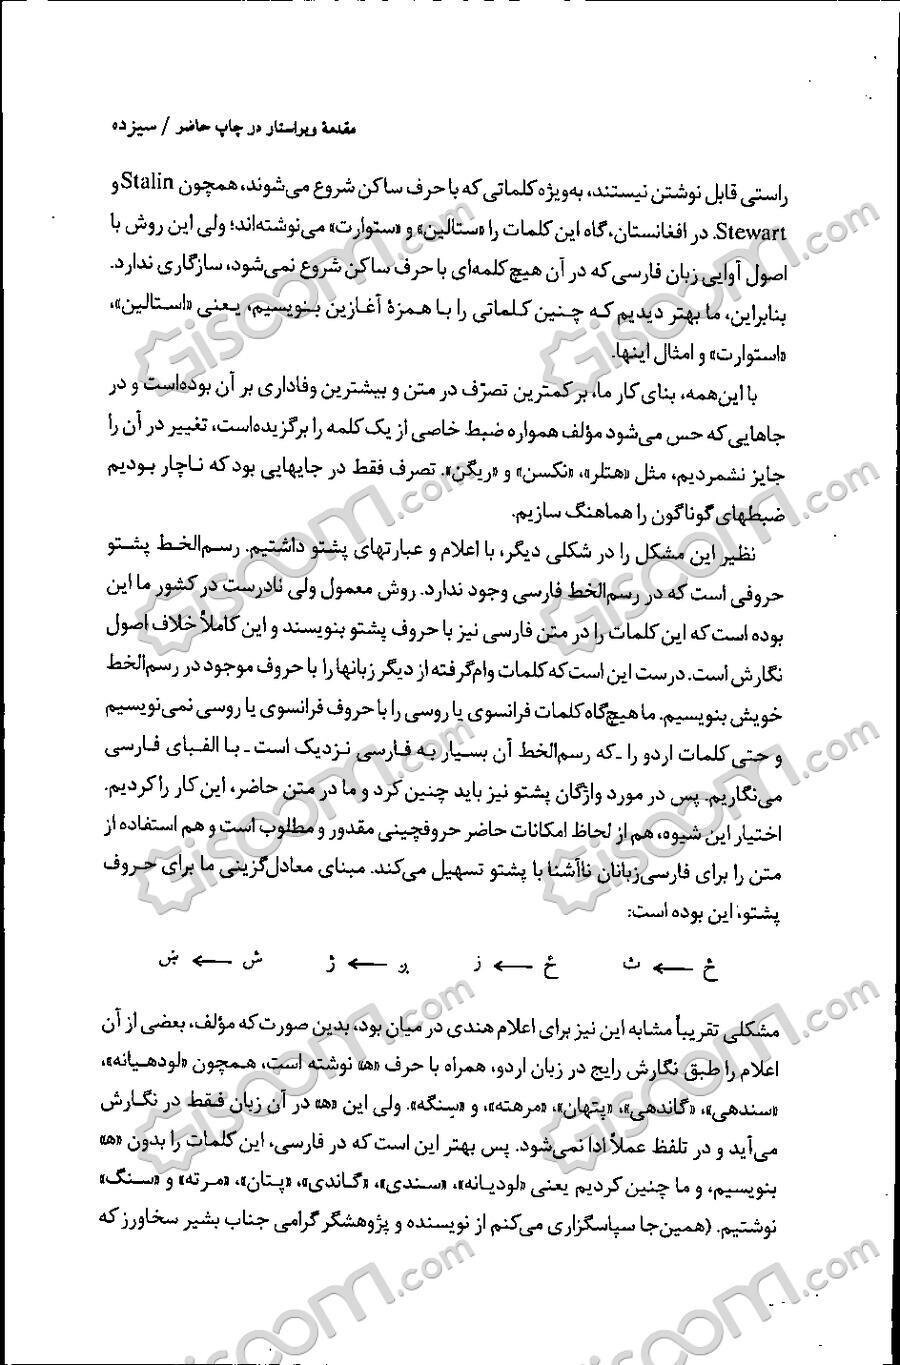 مقدمهٔ ویراستار در چاپ حاضر / سیزده
راستی قابل نوشتن نیستند، به‌ویژه کلماتی که با حرف ساکن شروع می‌شوند، همچون Stalin و
Stewart. در افغانستان، گاه این کلمات را «ستالین» و «ستوارت» می‌نوشته‌اند؛ ولی این روش با
اصول آوایی زبان فارسی که در آن هیچ کلمه‌ای با حرف ساکن شروع نمی‌شود، سازگاری ندارد.
بنابراین، ما بهتر دیدیم که چنین کلماتی را با همزهٔ آغازین بنویسیم، یعنی «استالین»،
«استوارت» و امثال اینها.
با این‌همه، بنای کار ما، بر کمترین تصرّف در متن و بیشترین وفاداری بر آن بوده‌است و در
جاهایی که حس می‌شود مؤلف همواره ضبط خاصی از یک کلمه را برگزیده‌است، تغییر در آن را
جایز نشمردیم، مثل «هتلر»، «نکسن» و «ریگن». تصرف فقط در جایهایی بود که ناچار بودیم
ضبطهای گوناگون را هماهنگ سازیم.
نظیر این مشکل را در شکلی دیگر، با اعلام و عبارتهای پشتو داشتیم. رسم‌الخط پشتو
حروفی است که در رسم‌الخط فارسی وجود ندارد. روش معمول ولی نادرست در کشور ما این
بوده است که این کلمات را در متن فارسی نیز با حروف پشتو بنویسند و این کاملاً خلاف اصول
نگارش است. درست این است که کلمات وام‌گرفته از دیگر زبانها را با حروف موجود در رسم‌الخط
خویش بنویسیم. ما هیچ‌گاه کلمات فرانسوی یا روسی را با حروف فرانسوی یا روسی نمی‌نویسیم
و حتی کلمات اردو را ـ که رسم‌الخط آن بسیار به فارسی نزدیک است ـ با الفبای فارسی
می‌نگاریم. پس در مورد واژگان پشتو نیز باید چنین کرد و ما در متن حاضر، این کار را کردیم.
اختیار این شیوه، هم از لحاظ امکانات حاضر حروفچینی مقدور و مطلوب است و هم استفاده از
متن را برای فارسی‌زبانان ناآشنا با پشتو تسهیل می‌کند. مبنای معادل‌گزینی ما برای حروف
پشتو، این بوده است:
څ ← ث ځ ← ز ږ ← ژ ش ← ښ
مشکلی تقریباً مشابه این نیز برای اعلام هندی در میان بود، بدین صورت که مؤلف، بعضی از آن
اعلام را طبق نگارش رایج در زبان اردو، همراه با حرف «ه» نوشته است، همچون «لودهیانه»،
«سندهی»، «گاندهی»، «پتهان»، «مرهته»، و «سنگه». ولی این «ه» در آن زبان فقط در نگارش
می‌آید و در تلفظ عملاً ادا نمی‌شود. پس بهتر این است که در فارسی، این کلمات را بدون «ه»
بنویسیم، و ما چنین کردیم یعنی «لودیانه»، «سندی»، «گاندی»، «پتان»، «مرته» و «سنگ»
نوشتیم. (همین‌جا سپاسگزاری می‌کنم از نویسنده و پژوهشگر گرامی جناب بشیر سخاورز که
Gisoom.com
Gisoom.com
Gisoom.com
Gisoom.com
Gisoom.com
Gisoom.com
Gisoom.com
Gisoom.com
Gisoom.com
Gisoom.com